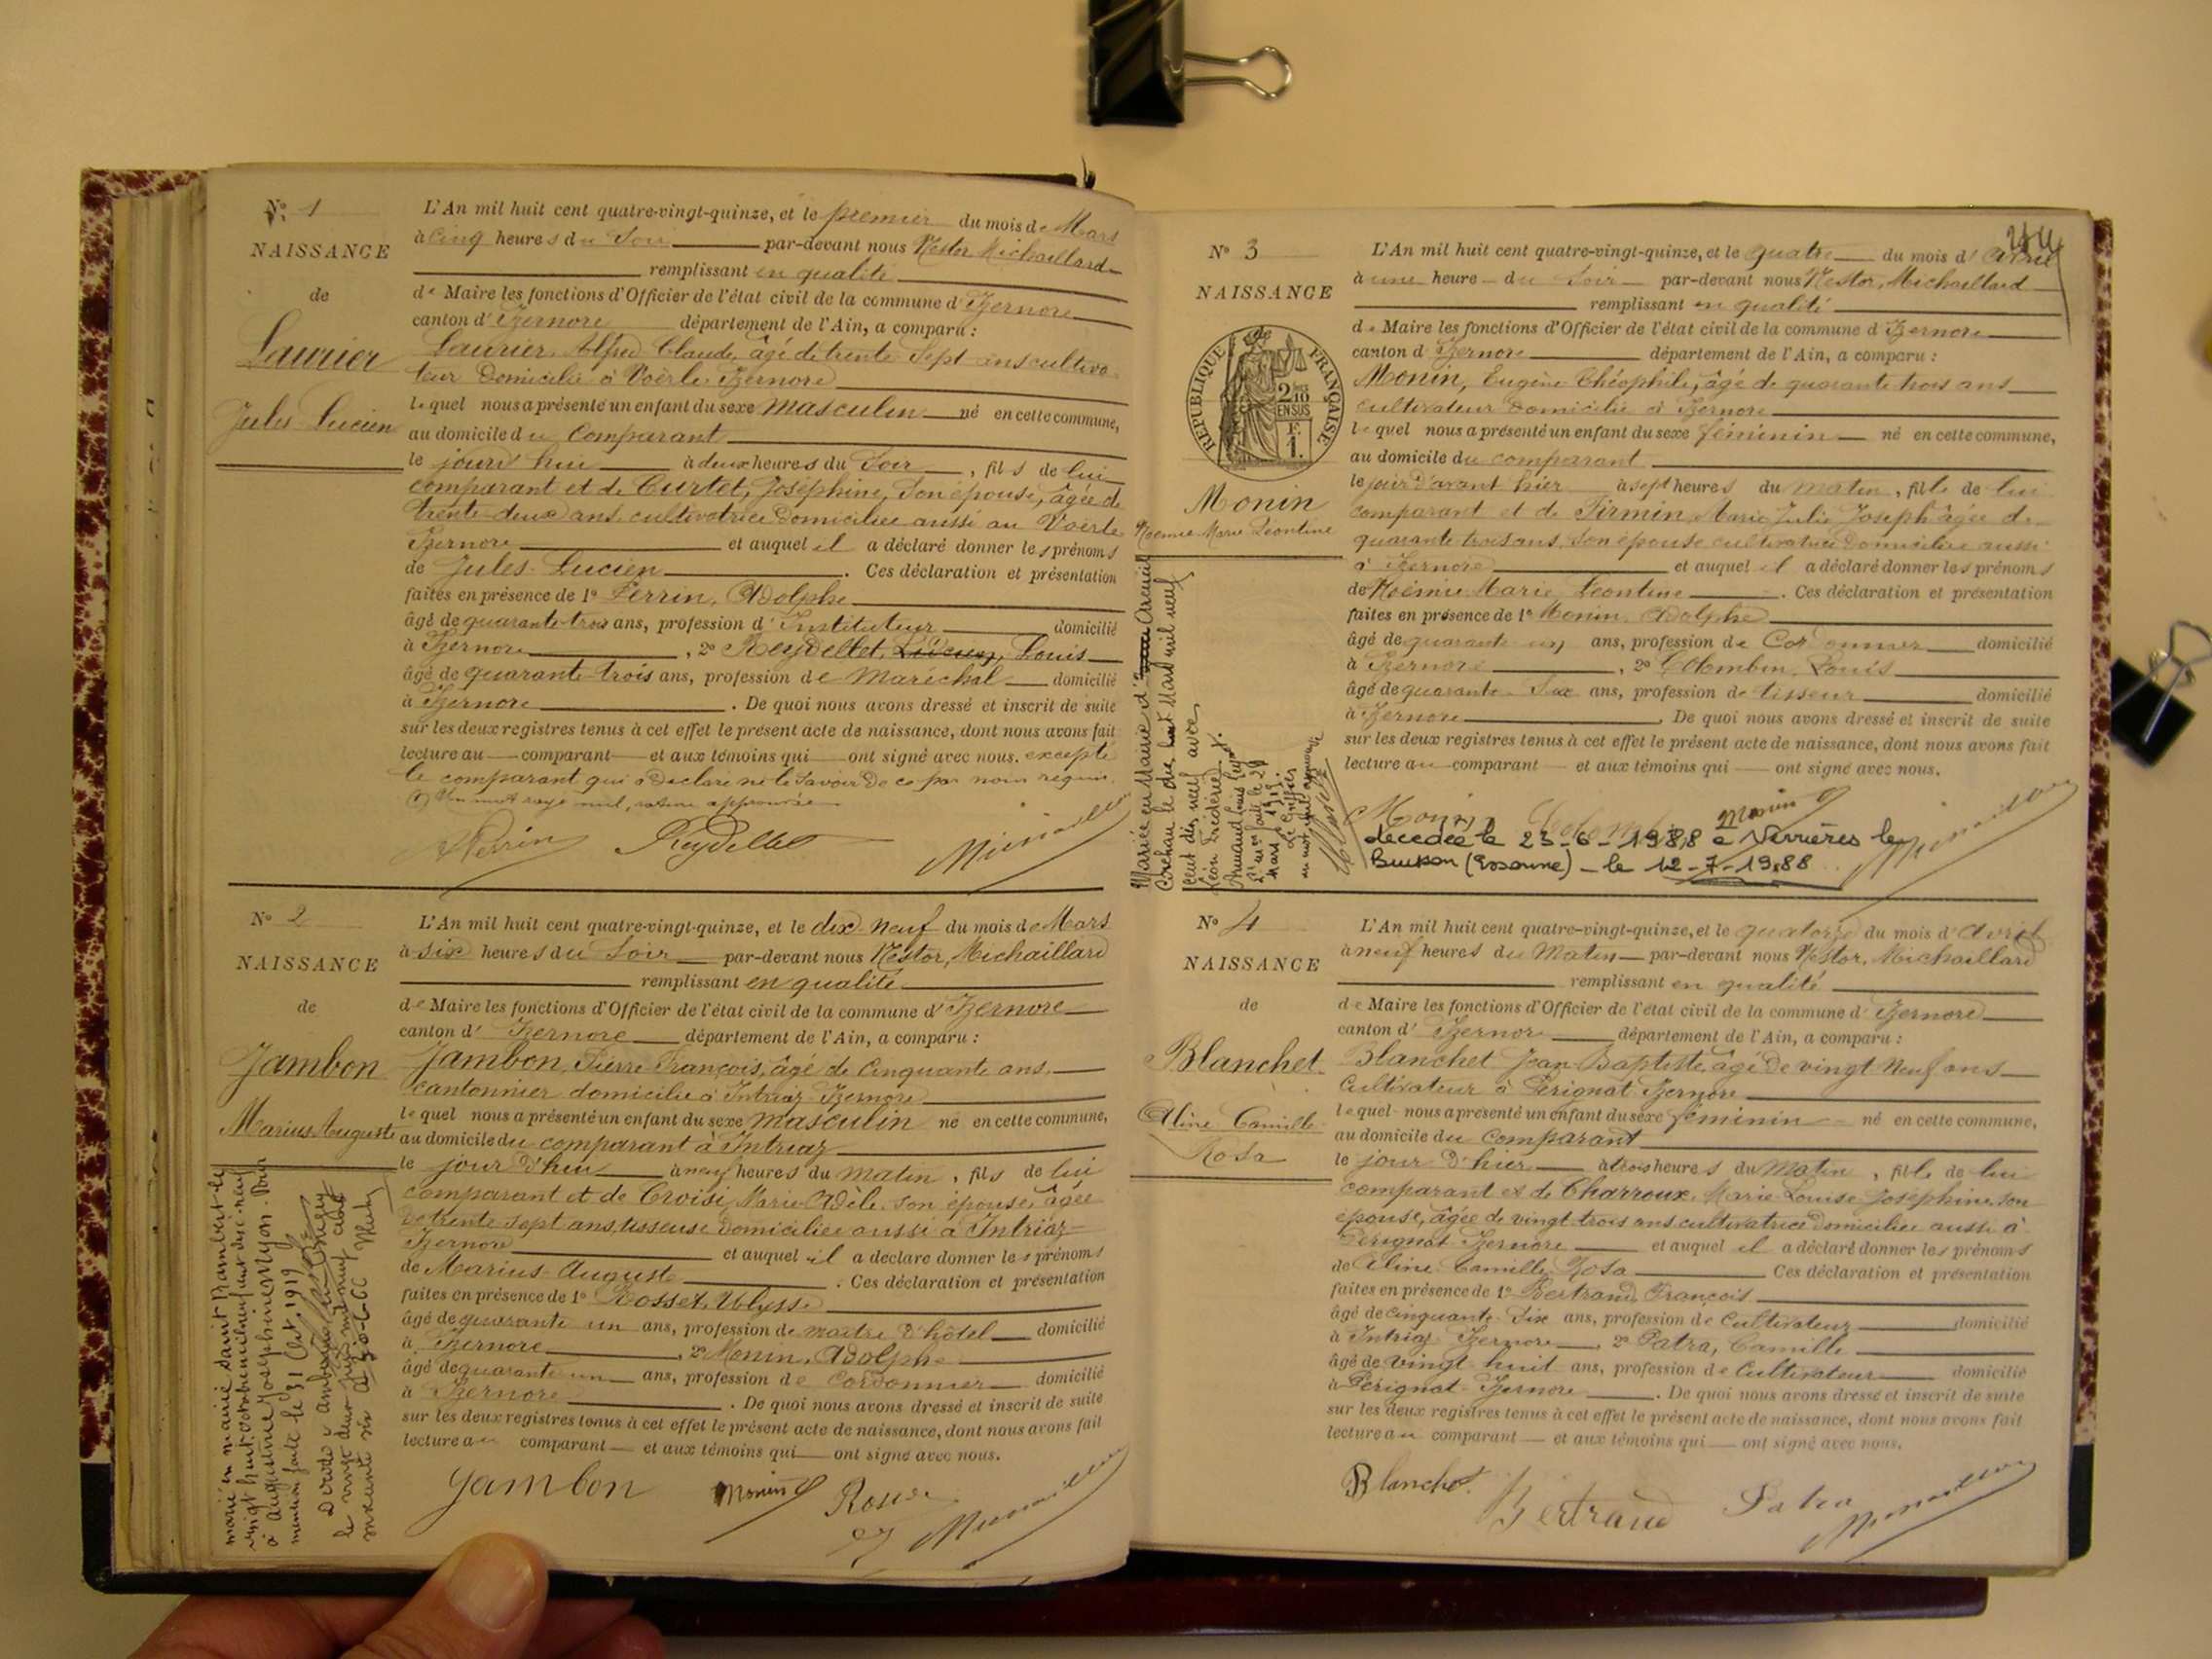 N° 1
NAISSANCE
de
Laurier
Jules Lucien
L'An mil huit cent quatre-vingt-quinze, et le premier du mois de Mars
à cinq heures du Soir par-devant nous Nestor Michaillard
remplissant en qualité
de Maire les fonctions d'Officier de l'état civil de la commune d'Izernore
canton d'Izernore département de l'Ain, a comparu :
Laurier, Alfred Claude, âgé de trente Sept ans cultiva
teur domicilié à Voërle Izernore
lequel nous a présenté un enfant du sexe masculin né en cette commune,
au domicile du comparant
le jourd'hui à deux heures du Soir, fils de lui
comparant et de Curtet, Joséphine, Son épouse, âgée de
trente-deux ans, cultivatrice domiciliée aussi au Voërle
Izernore et auquel il a déclaré donner les prénoms
de Jules-Lucien. Ces déclaration et présentation
faites en présence de 1° Perrin, Adolphe
âgé de quarante-trois ans, profession d'Instituteur domicilié
à Izernore, 2° Reydellet, Lucien, Louis
âgé de quarante-trois ans, profession de Maréchal domicilié
à Izernore. De quoi nous avons dressé et inscrit de suite
sur les deux registres tenus à cet effet le présent acte de naissance, dont nous avons fait
lecture au comparant et aux témoins qui ont signé avec nous. excepté
le comparant qui a déclaré ne le Savoir de ce par nous requis.
Un mot rayé nul, rature approuvée
Perrin Reydellet Michaillard
N° 2
NAISSANCE
de
Jambon
Marius Auguste
marié en mairie Saint Rambert le
vingt huit octobre mil neuf cent dix-neuf
à Augustine Joséphine Myon. Pour
mention faite le 31 Oct. 1919
Décédé à Ambérieu en Bugey
le vingt deux
L'An mil huit cent quatre-vingt-quinze, et le dix neuf du mois de Mars
à six heures du Soir par-devant nous Nestor, Michaillard
remplissant en qualité
de Maire les fonctions d'Officier de l'état civil de la commune d'Izernore
canton d'Izernore département de l'Ain, a comparu :
Jambon, Pierre François, âgé de Cinquante ans,
Cantonnier domicilié à Intriaz-Izernore
lequel nous a présenté un enfant du sexe masculin né en cette commune,
au domicile du comparant à Intriaz
le jour d'hui à neuf heures du matin, fils de lui
comparant et de Croisi, Marie Adèle, Son épouse, âgée
de trente sept ans, tisseuse domiciliée aussi à Intriaz
Izernore et auquel il a déclaré donner les prénoms
de Marius-Auguste. Ces déclaration et présentation
faites en présence de 1° Rosset, Ulysse
âgé de quarante un ans, profession de maître d'hôtel domicilié
à Izernore, 2° Monin, Adolphe
âgé de quarante un ans, profession de Cordonnier domicilié
à Izernore. De quoi nous avons dressé et inscrit de suite
sur les deux registres tenus à cet effet le présent acte de naissance, dont nous avons fait
lecture au comparant et aux témoins qui ont signé avec nous.
Jambon Monin Rosset Michaillard
N° 3
NAISSANCE
REPUBLIQUE FRANÇAISE
2/10 EN SUS
F. 1.
Monin
Noémie Marie Léontine
Mariée en Mairie d'Arcueil
Cachan le dix Mars mil neuf
cent dix neuf avec
Léon Frédéric
L'An mil huit cent quatre-vingt-quinze, et le quatre du mois d'avril
à une heure du Soir par-devant nous Nestor, Michaillard
remplissant en qualité
de Maire les fonctions d'Officier de l'état civil de la commune d'Izernore
canton d'Izernore département de l'Ain, a comparu :
Monin, Eugène Théophile, âgé de quarante trois ans
cultivateur domicilié à Izernore
lequel nous a présenté un enfant du sexe féminin né en cette commune,
au domicile du comparant
le jour d'avant hier à sept heures du matin, fille de lui
comparant et de Firmin, Marie Julie Joseph âgée de
quarante trois ans, Son épouse cultivatrice domiciliée aussi
à Izernore et auquel il a déclaré donner les prénoms
de Noémie Marie Léontine. Ces déclaration et présentation
faites en présence de 1° Monin, Adolphe
âgé de quarante un ans, profession de Cordonnier domicilié
à Izernore, 2° Colomban, Louis
âgé de quarante-Six ans, profession de tisseur domicilié
à Izernore. De quoi nous avons dressé et inscrit de suite
sur les deux registres tenus à cet effet le présent acte de naissance, dont nous avons fait
lecture au comparant et aux témoins qui ont signé avec nous.
Monin Monin Michaillard
décédée le 23-6-1988 à Verrières le
Buisson (Essonne) - le 12-7-1988
N° 4
NAISSANCE
de
Blanchet
Aline Camille
Rosa
L'An mil huit cent quatre-vingt-quinze, et le quatorze du mois d'Avril
à neuf heures du Matin par-devant nous Nestor, Michaillard
remplissant en qualité
de Maire les fonctions d'Officier de l'état civil de la commune d'Izernore
canton d'Izernore département de l'Ain, a comparu :
Blanchet Jean-Baptiste, âgé de vingt Neuf ans
Cultivateur à Pérignat-Izernore
lequel nous a présenté un enfant du sexe féminin né en cette commune,
au domicile du comparant
le jour d'hier à trois heures du Matin, fille de lui
comparant et de Charroux, Marie-Louise-Joséphine, Son
épouse, âgée de vingt-trois ans, cultivatrice domiciliée aussi à
Pérignat-Izernore et auquel il a déclaré donner les prénoms
de Aline Camille Rosa Ces déclaration et présentation
faites en présence de 1° Bertrand, François
âgé de cinquante-Six ans, profession de Cultivateur domicilié
à Intriaz Izernore, 2° Patra, Camille
âgé de vingt huit ans, profession de Cultivateur domicilié
à Pérignat-Izernore. De quoi nous avons dressé et inscrit de suite
sur les deux registres tenus à cet effet le présent acte de naissance, dont nous avons fait
lecture au comparant et aux témoins qui ont signé avec nous.
Blanchet Bertrand Patra Michaillard